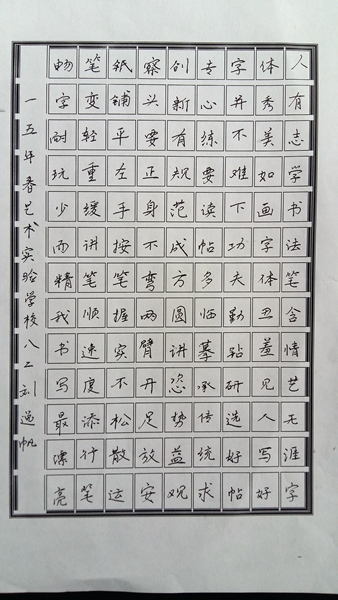 人有志学书法笔含情艺无涯字
体秀美如画字体丑羞见人写好
字并不难下功夫勤钻研选好帖
专心练要读帖多临摹承传统求
创新有规范成方圆讲姿势益观
察头要正身不弯两臂开足放安
纸铺平左手按笔握实不松散运
笔变轻重缓讲笔顺速度添行笔
畅字耐玩少而精我书写最漂亮
一五年春艺术实验学校八二刘逸帆